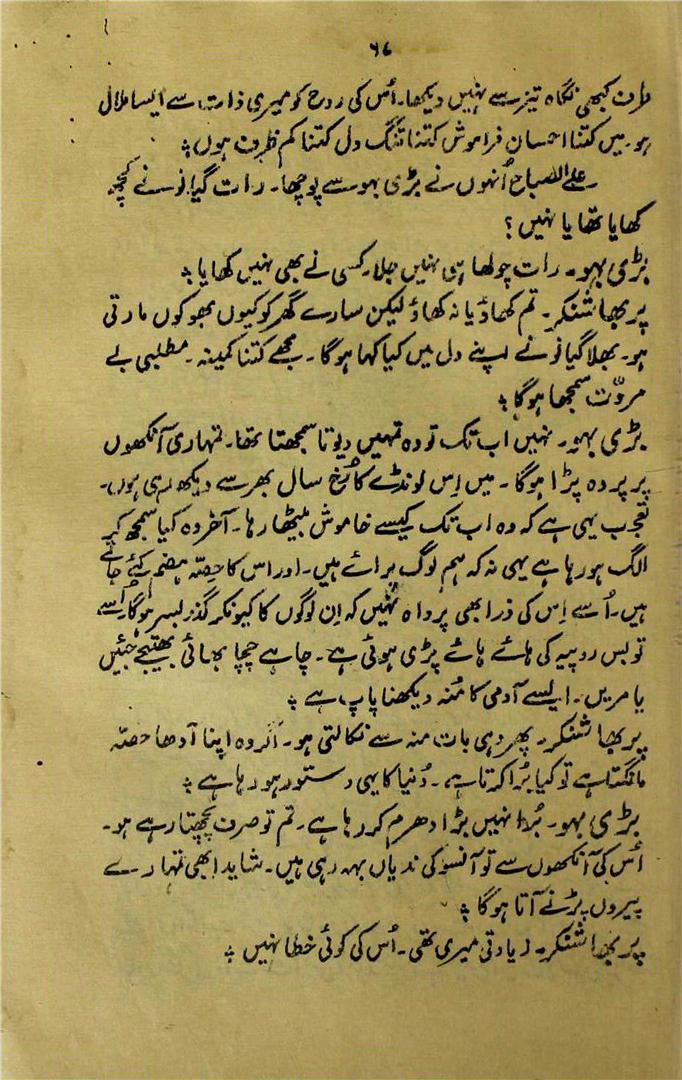 ۶۷
طرف کبھی نگاہ تیز سے نہیں دیکھا۔ اُس کی روح کو میری ذات سے ایسا ملال
ہو۔ میں کتنا احسان فراموش کتنا تنگ دل کتنا کم ظرف ہوں؛
علی الصباح اُنہوں نے بڑی بہو سے پوچھا۔ رات گیانو نے کچھ
کھایا تھا یا نہیں؟
بڑی بہو۔ رات چولھا ہی نہیں جلا۔ کسی نے بھی نہیں کھایا؛
پربھا شنکر۔ تم کھاؤ یا نہ کھاؤ لیکن سارے گھر کو کیوں بھوکوں مارتی
ہو۔ بھلا گیانو نے اپنے دل میں کیا کہا ہوگا۔ مجھے کتنا کمینہ۔ مطلبی بے
مروّت سمجھا ہوگا؛
بڑی بہو۔ نہیں اب تک تو وہ تمہیں دیوتا سمجھتا تھا۔ تمہاری آنکھوں
پر پردہ پڑا ہوگا۔ میں اِس لونڈے کا رُخ سال بھر سے دیکھ رہی ہوں۔
تعجب یہی ہے کہ وہ اب تک کیسے خاموش بیٹھا رہا۔ آخر وہ کیا سمجھ کر
الگ ہو رہا ہے یہی نہ کہ ہم لوگ پرائے ہیں۔ اور اس کا حصّہ ہضم کئے جاتے
ہیں۔ اُسے اِس کی ذرا بھی پرواہ نہیں کہ اِن لوگوں کا کیونکر گذر بسر ہوگا۔ اُسے
تو بس روپیہ کی ہائے ہائے پڑی ہوئی ہے۔ چاہے چچا بھائی بھتیجے جئیں
یا مریں۔ ایسے آدمی کا مُنہ دیکھنا پاپ ہے؛
پربھا شنکر۔ پھر وہی بات منہ سے نکالتی ہو۔ اگر وہ اپنا آدھا حصّہ
مانگتا ہے تو کیا بُرا کرتا ہے۔ دُنیا کا یہی دستور ہو رہا ہے؛
بڑی بہو۔ بُرا نہیں بڑا دھرم کر رہا ہے۔ تم تو صرف پچھتا رہے ہو۔
اُس کی آنکھوں سے تو آنسو کی ندیاں بہہ رہی ہیں۔ شاید ابھی تمہارے
پیروں پڑنے آتا ہوگا؛
پربھا شنکر۔ زیادتی میری تھی۔ اُس کی کوئی خطا نہیں؛